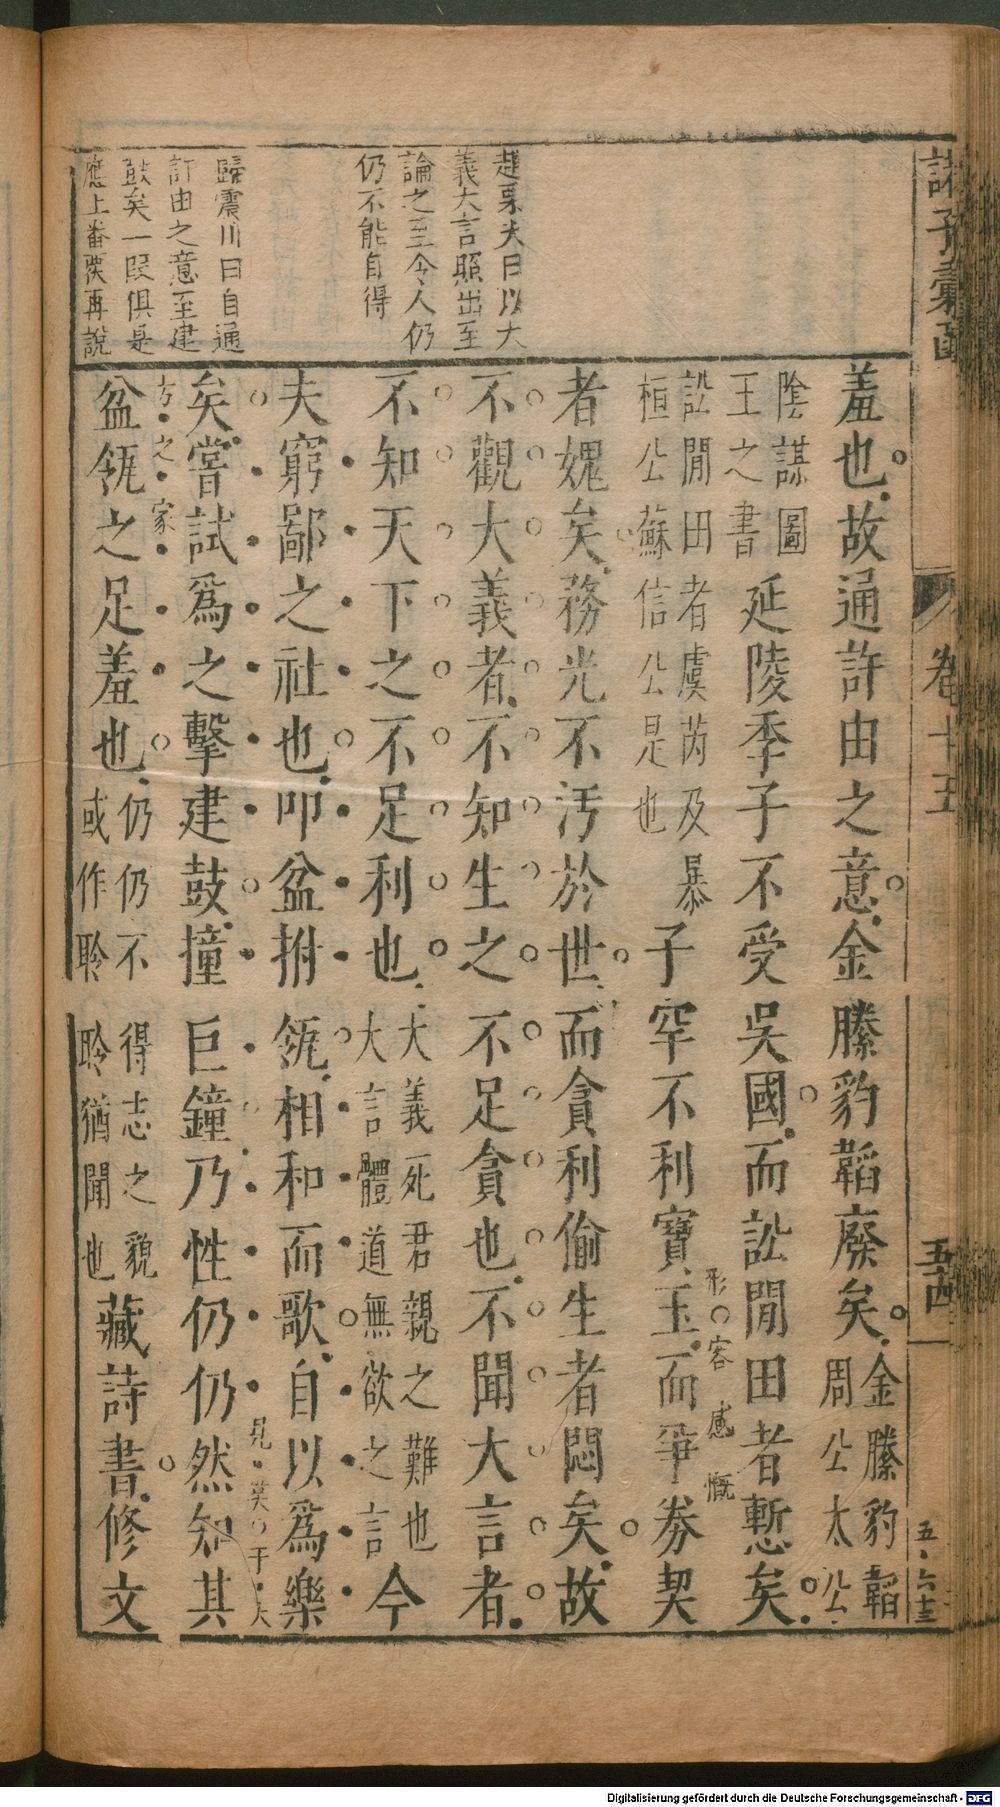 諸子彙函
卷十五
五四
五六十三
趙
夫曰以大
義大言照出至
論之至今人仍
仍不能自得
歸震川曰自通
許由之意至建
鼓矣一段俱是
應上
再說
羞也故通許由之意金縢豹韜廢矣金縢豹韜
周公太公
陰謀圖
王之書延陵季子不受吳國而訟閒田者慙矣
訟閒田者虞芮及暴
桓公蘇信公是也
子罕不利寶玉而爭券契
形容感慨
者媿矣務光不汚於世而貪利偷生者悶矣故
不觀大義者不知生之不足貪也不聞大言者
不知天下之不足利也大義死君親之難也
大言體道無欲之言今
夫窮鄙之社也叩盆拊瓴相和而歌自以爲樂
見莫干大
矣嘗試爲之擊建鼓撞巨鐘乃性仍仍然知其
方之家
盆瓴之足羞也仍仍不得志之貌
或作聆聆猶聞也藏詩書修文
Digitalisierung gefördert durch die Deutsche Forschungsgemeinschaft - DFG